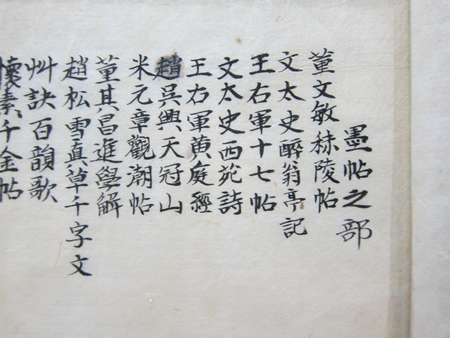 墨帖之部
董文敏秣陵帖
文太史醉翁亭記
王右軍十七帖
文太史西苑詩
王右軍黄庭經
趙呉興天冠山
米元章觀潮帖
董其昌進學解
趙松雪真草千字文
艸訣百韻歌
懷素千金帖